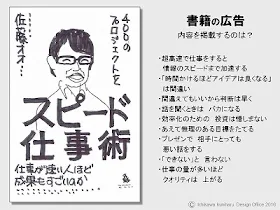 400の
プロジェクトを
佐藤オオ…
スピード
仕事術
仕事が速い人ほど
書籍の広告
内容を掲載するのは？
・超高速で仕事をすると
情報のスピードまで加速する
・「時間かけるほどアイデアは良くなる」
は間違い
・間違えてもいいから判断は早く
・話を聞くときは バカになる
・効率化のための 投資は惜しまない
・あえて無理のある目標をたてる
・プレゼンで 相手にとっても
悪い話をする
・「できない」と 言わない
・仕事の量が多いほど
クオリティは 上がる
Design Office